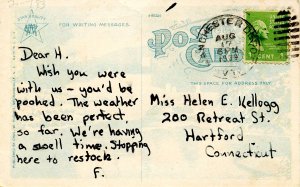 FOR WAITING MESSAGES
POST CARD
THIS SPACE FOR ADDRESS ONLY
MANCHESTER DEPOT
AUG
6 PM
1939
VT.
1 CENT 1
Dear H.
Wish you were
with us – you'd be
pooked. The weather
has been perfect,
so far. We're having
a swell time. Stopping
here to restock.
F.
Miss Helen E. Kellogg
200 Retreat St.
Hartford
Connecticut